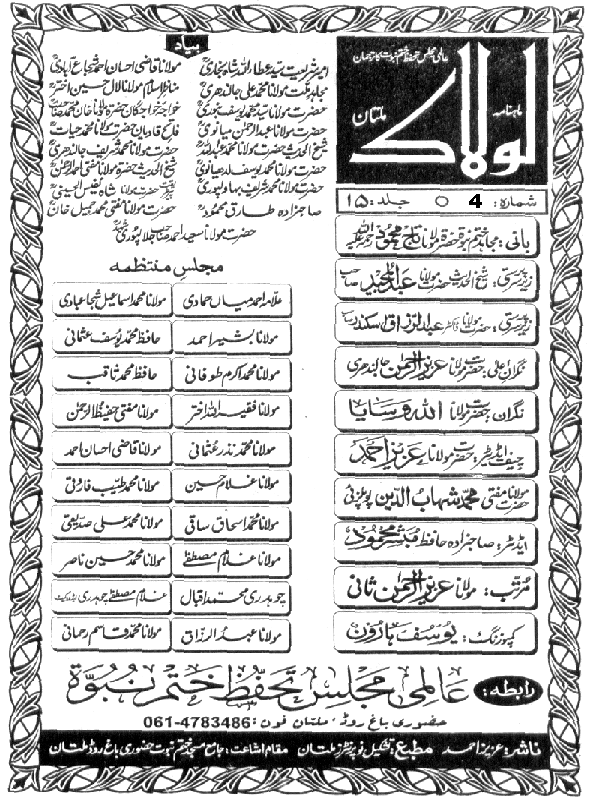 عالمی مجلس تحفظ ختم نبوت کا ترجمان
ماہنامہ
لولاک
ملتان
شمارہ: 4 ○ جلد: ۱۵
بانی: مجاہد ختم نبوۃ حضرت مولانا تاج محمود رحمۃ اللہ علیہ
زیر سرپرستی: شیخ الحدیث حضرت مولانا عبدالمجید صاحب
زیر سرپرستی: حضرت مولانا ڈاکٹر عبدالرزاق سکندر
نگران اعلیٰ: حضرت مولانا عزیز الرحمن جالندھری
نگران: حضرت مولانا اللہ وسایا
چیف ایڈیٹر: حضرت مولانا عزیز احمد
حضرت مولانا مفتی محمد شہاب الدین پوپلزئی
ایڈیٹر: صاحبزادہ حافظ مبشر محمود
مرتب: مولانا عزیز الرحمن ثانی
کمپوزنگ: یوسف ہارون
بیاد
امیر شریعت سید عطاء اللہ شاہ بخاری
مولانا قاضی احسان احمد شجاع آبادی
مجاہد ملت مولانا محمد علی جالندھری
مناظر اسلام مولانا لال حسین اختر
حضرت مولانا سید محمد یوسف بنوری
خواجہ خواجگان حضرت مولانا خان محمد
حضرت مولانا عبدالرحمن میانوی
فاتح قادیان حضرت مولانا محمد حیات
شیخ الحدیث حضرت مولانا محمد عبداللہ
حضرت مولانا محمد شریف جالندھری
حضرت مولانا محمد یوسف لدھیانوی
شیخ الحدیث حضرت مولانا مفتی احمد الرحمن
حضرت مولانا محمد شریف بہاولپوری
حضرت مولانا شاہ نفیس الحسینی
صاحبزادہ طارق محمود
حضرت مولانا مفتی محمد جمیل خان
حضرت مولانا سعید احمد جلالپوری
مجلس منتظمہ
علامہ احمد میاں حمادی
مولانا محمد اسماعیل شجاعبادی
مولانا بشیر احمد
حافظ محمد یوسف عثمانی
مولانا محمد اکرم طوفانی
حافظ محمد ثاقب
مولانا فقیر اللہ اختر
مولانا مفتی حفیظ الرحمن
مولانا محمد نذر عثمانی
مولانا قاضی احسان احمد
مولانا غلام حسین
مولانا محمد طیب فاروقی
مولانا محمد اسحاق ساقی
مولانا محمد علی صدیقی
مولانا غلام مصطفےٰ
مولانا محمد حسین ناصر
چوہدری محمد اقبال
غلام مصطفےٰ چوہدری ایڈووکیٹ
مولانا عبدالرزاق
مولانا محمد قاسم رحمانی
رابطہ: عالمی مجلس تحفظ ختم نبوۃ
حضوری باغ روڈ، ملتان فون: 061-4783486
ناشر: عزیز احمد مطبع: تشکیل نو پرنٹرز ملتان مقام اشاعت: جامع مسجد ختم نبوت حضوری باغ روڈ ملتان